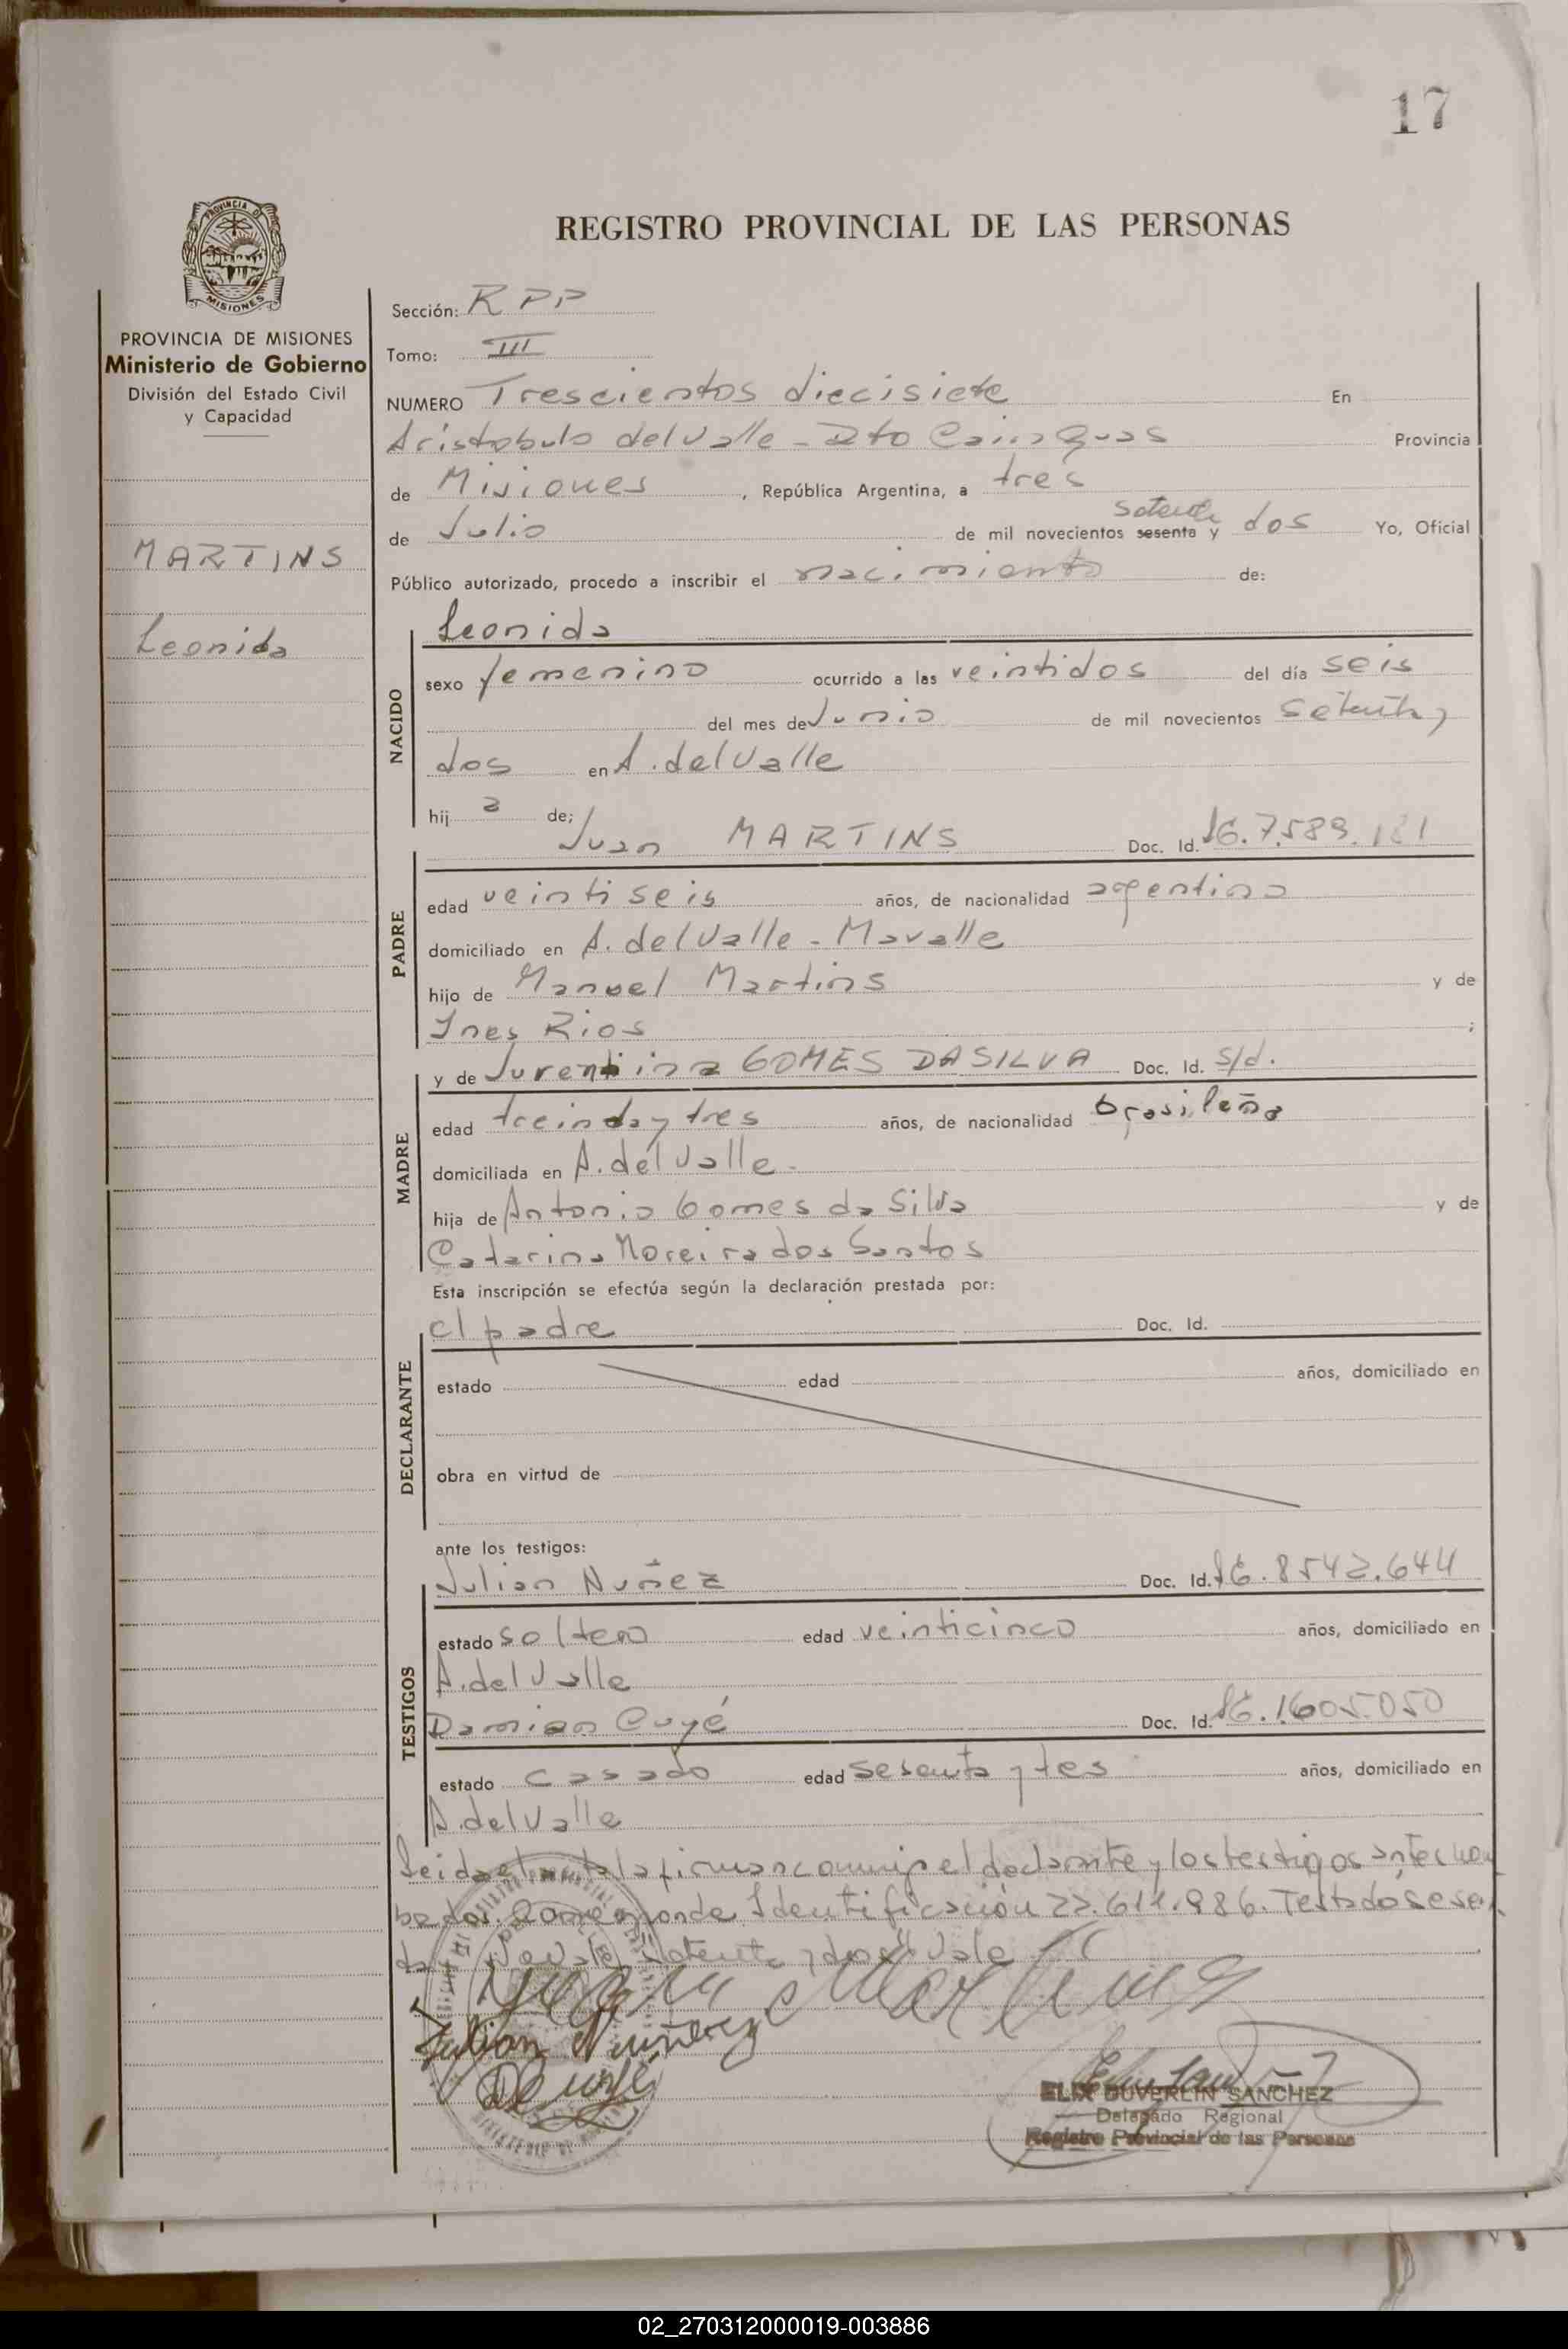 17
PROVINCIA DE MISIONES
REGISTRO PROVINCIAL DE LAS PERSONAS
PROVINCIA DE MISIONES
Ministerio de Gobierno
División del Estado Civil
y Capacidad
MARTINS
Leonida
Sección: RPP
Tomo: III
NUMERO Trescientos diecisiete En
Aristobulo del Valle - Dto Cainguas Provincia
de Misiones, República Argentina, a tres
setenta
de Julio de mil novecientos sesenta y dos Yo, Oficial
Público autorizado, procedo a inscribir el nacimiento de:
NACIDO
Leonida
sexo femenino ocurrido a las veintidos del día seis
del mes de Junio de mil novecientos setenta y
dos en A. del Valle
hij a de;
PADRE
Juan MARTINS Doc. Id. 7.589.181
edad veintiseis años, de nacionalidad argentina
domiciliado en A. del Valle - Mavalle
hijo de Manuel Martins y de
Ines Rios ;
MADRE
y de Jurentina GOMES DASILVA Doc. Id. S/d.
edad treinta y tres años, de nacionalidad brasileña
domiciliada en A. del Valle.
hija de Antonio Gomes da Silva y de
Catarina Moreira dos Santos
Esta inscripción se efectúa según la declaración prestada por:
DECLARANTE
el padre Doc. Id.
estado edad años, domiciliado en
obra en virtud de
ante los testigos:
TESTIGOS
Julian Nuñez Doc. Id. 8542.644
estado soltero edad veinticinco años, domiciliado en
A. del Valle
Damian Cuyé Doc. Id. 1605.050
estado casado edad sesenta y tes años, domiciliado en
A. del Valle
Leida el acta la firman conmigo el declarante y los testigos antes nom
bados. Corresponde Identificación 22.611.986. Testado sesen
ta setenta y dos Vale
Juan Martins
Julian Nuñez
D Cuyé
ELIX DUVERLIN SANCHEZ
Delegado Regional
Registro Provincial de las Personas
02_270312000019-003886